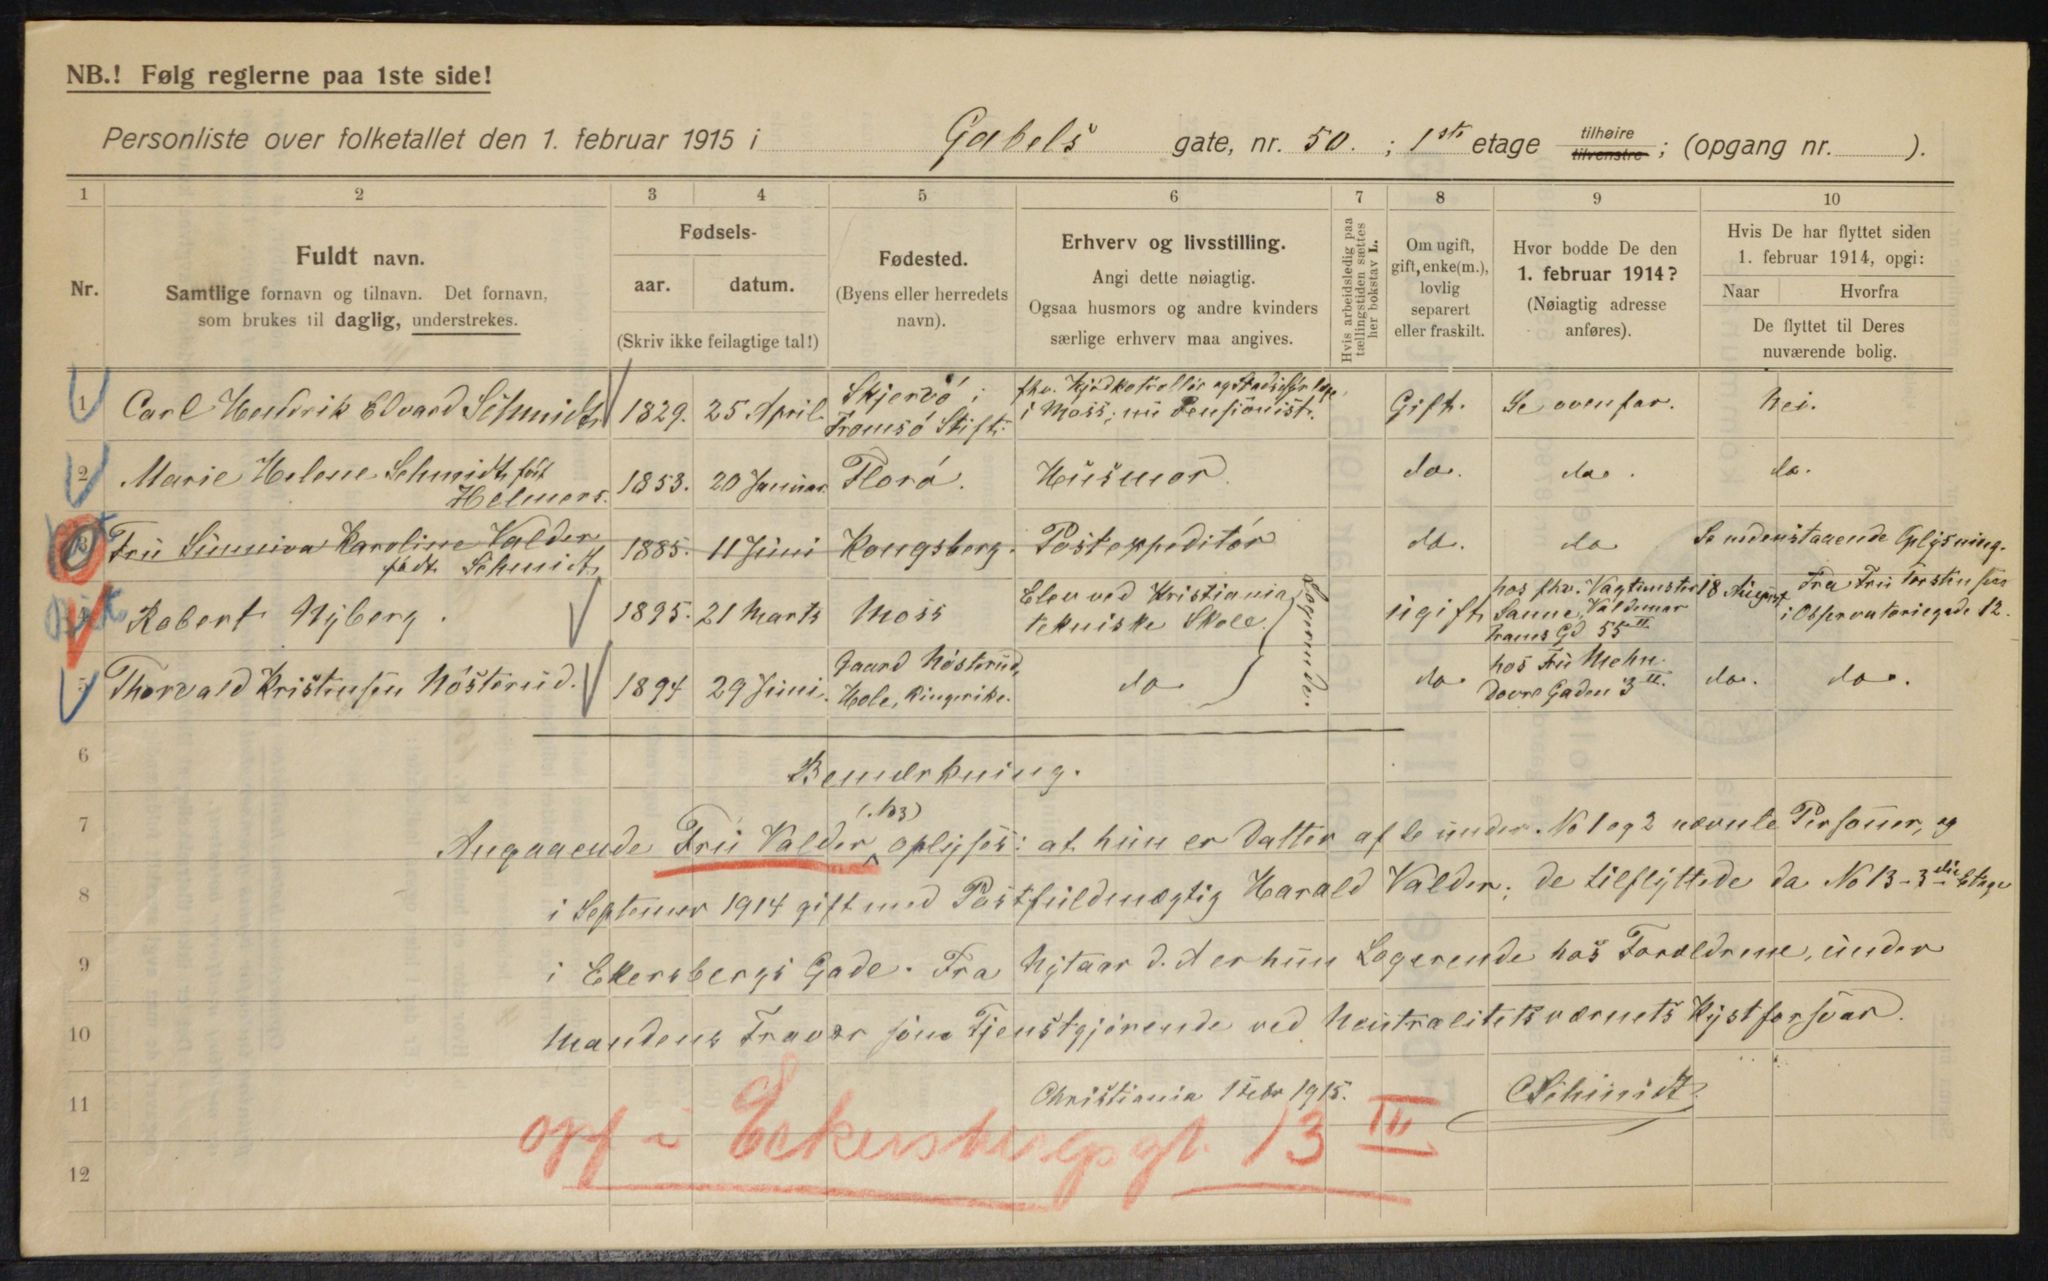 NB.! Følg reglerne paa 1ste side!
Personliste over folketallet den 1. februar 1915 i Gabels gate, nr. 50. ; 1ste etage tilhøire tilvenstre ; (opgang nr. ).
1 2 3 4 5 6 7 8 9 10
Nr.
Fuldt navn.
Samtlige fornavn og tilnavn. Det fornavn,
som brukes til daglig, understrekes.
Fødsels-
aar. datum.
(Skriv ikke feilagtige tal!)
Fødested.
(Byens eller herredets
navn).
Erhverv og livsstilling.
Angi dette nøiagtig.
Ogsaa husmors og andre kvinders
særlige erhverv maa angives.
Hvis arbeidsledig paa
tællingstiden sættes
her bokstav L.
Om ugift,
gift, enke(m.),
lovlig
separert
eller fraskilt.
Hvor bodde De den
1. februar 1914?
(Nøiagtig adresse
anføres).
Hvis De har flyttet siden
1. februar 1914, opgi:
Naar Hvorfra
De flyttet til Deres
nuværende bolig.
1 Carl Hendrik Edvard Schmidt 1829. 25 April. Skjervö i
Tromsö Stift. fhv. Kjödkontrollör og
i Moss; nu Pensionist. Gift. Se ovenfor. Nei.
2 Marie Helene Schmidt föt
Helmers. 1853. 20 Januar Florö. Husmor do. do. do.
3 Fru Sunniva Karoline Valder
födt Schmidt 1885. 11 Juni Kongsberg. Postexpeditör do. do Se nedenstaaende Oplysning.
4 Robert Nyberg. 1895. 21 Marts Moss Elev ved Kristiania
tekniske Skole. ugift hos fhv. Vagtmester
Sanne, Valdemar
Thranes Gd 55 II 18 August Fra Fru Torstensen
i Observatoriegade 12.
5 Thorvald Kristensen Nösterud. 1894 29 Juni. Gaard Nösterud,
Hole, Ringerike. do Logerende. do hos Fru Mehn.
Dovre Gaden 3 II. do. do.
6 Bemærkning.
(No3)
7 Angaaende Fru Valder oplyses: at hun er Datter af de under No 1 og 2 nævnte Personer, og
8 i Septemer 1914 gift med Postfuldmægtig Harald Valder; de tilflyttede da No 13 - 3die Etage
9 i Ekersbergs Gade. Fra Nytaar d. A er hun Logerende hos Forældrene, under
10 Mandens Fravær som Tjenstgjörende ved Neutralitetsværnets Kystforsvar.
11 Christiania 1 Febr 1915. CSchmidt.
opf i Eckersbergsgt. 13 III
12